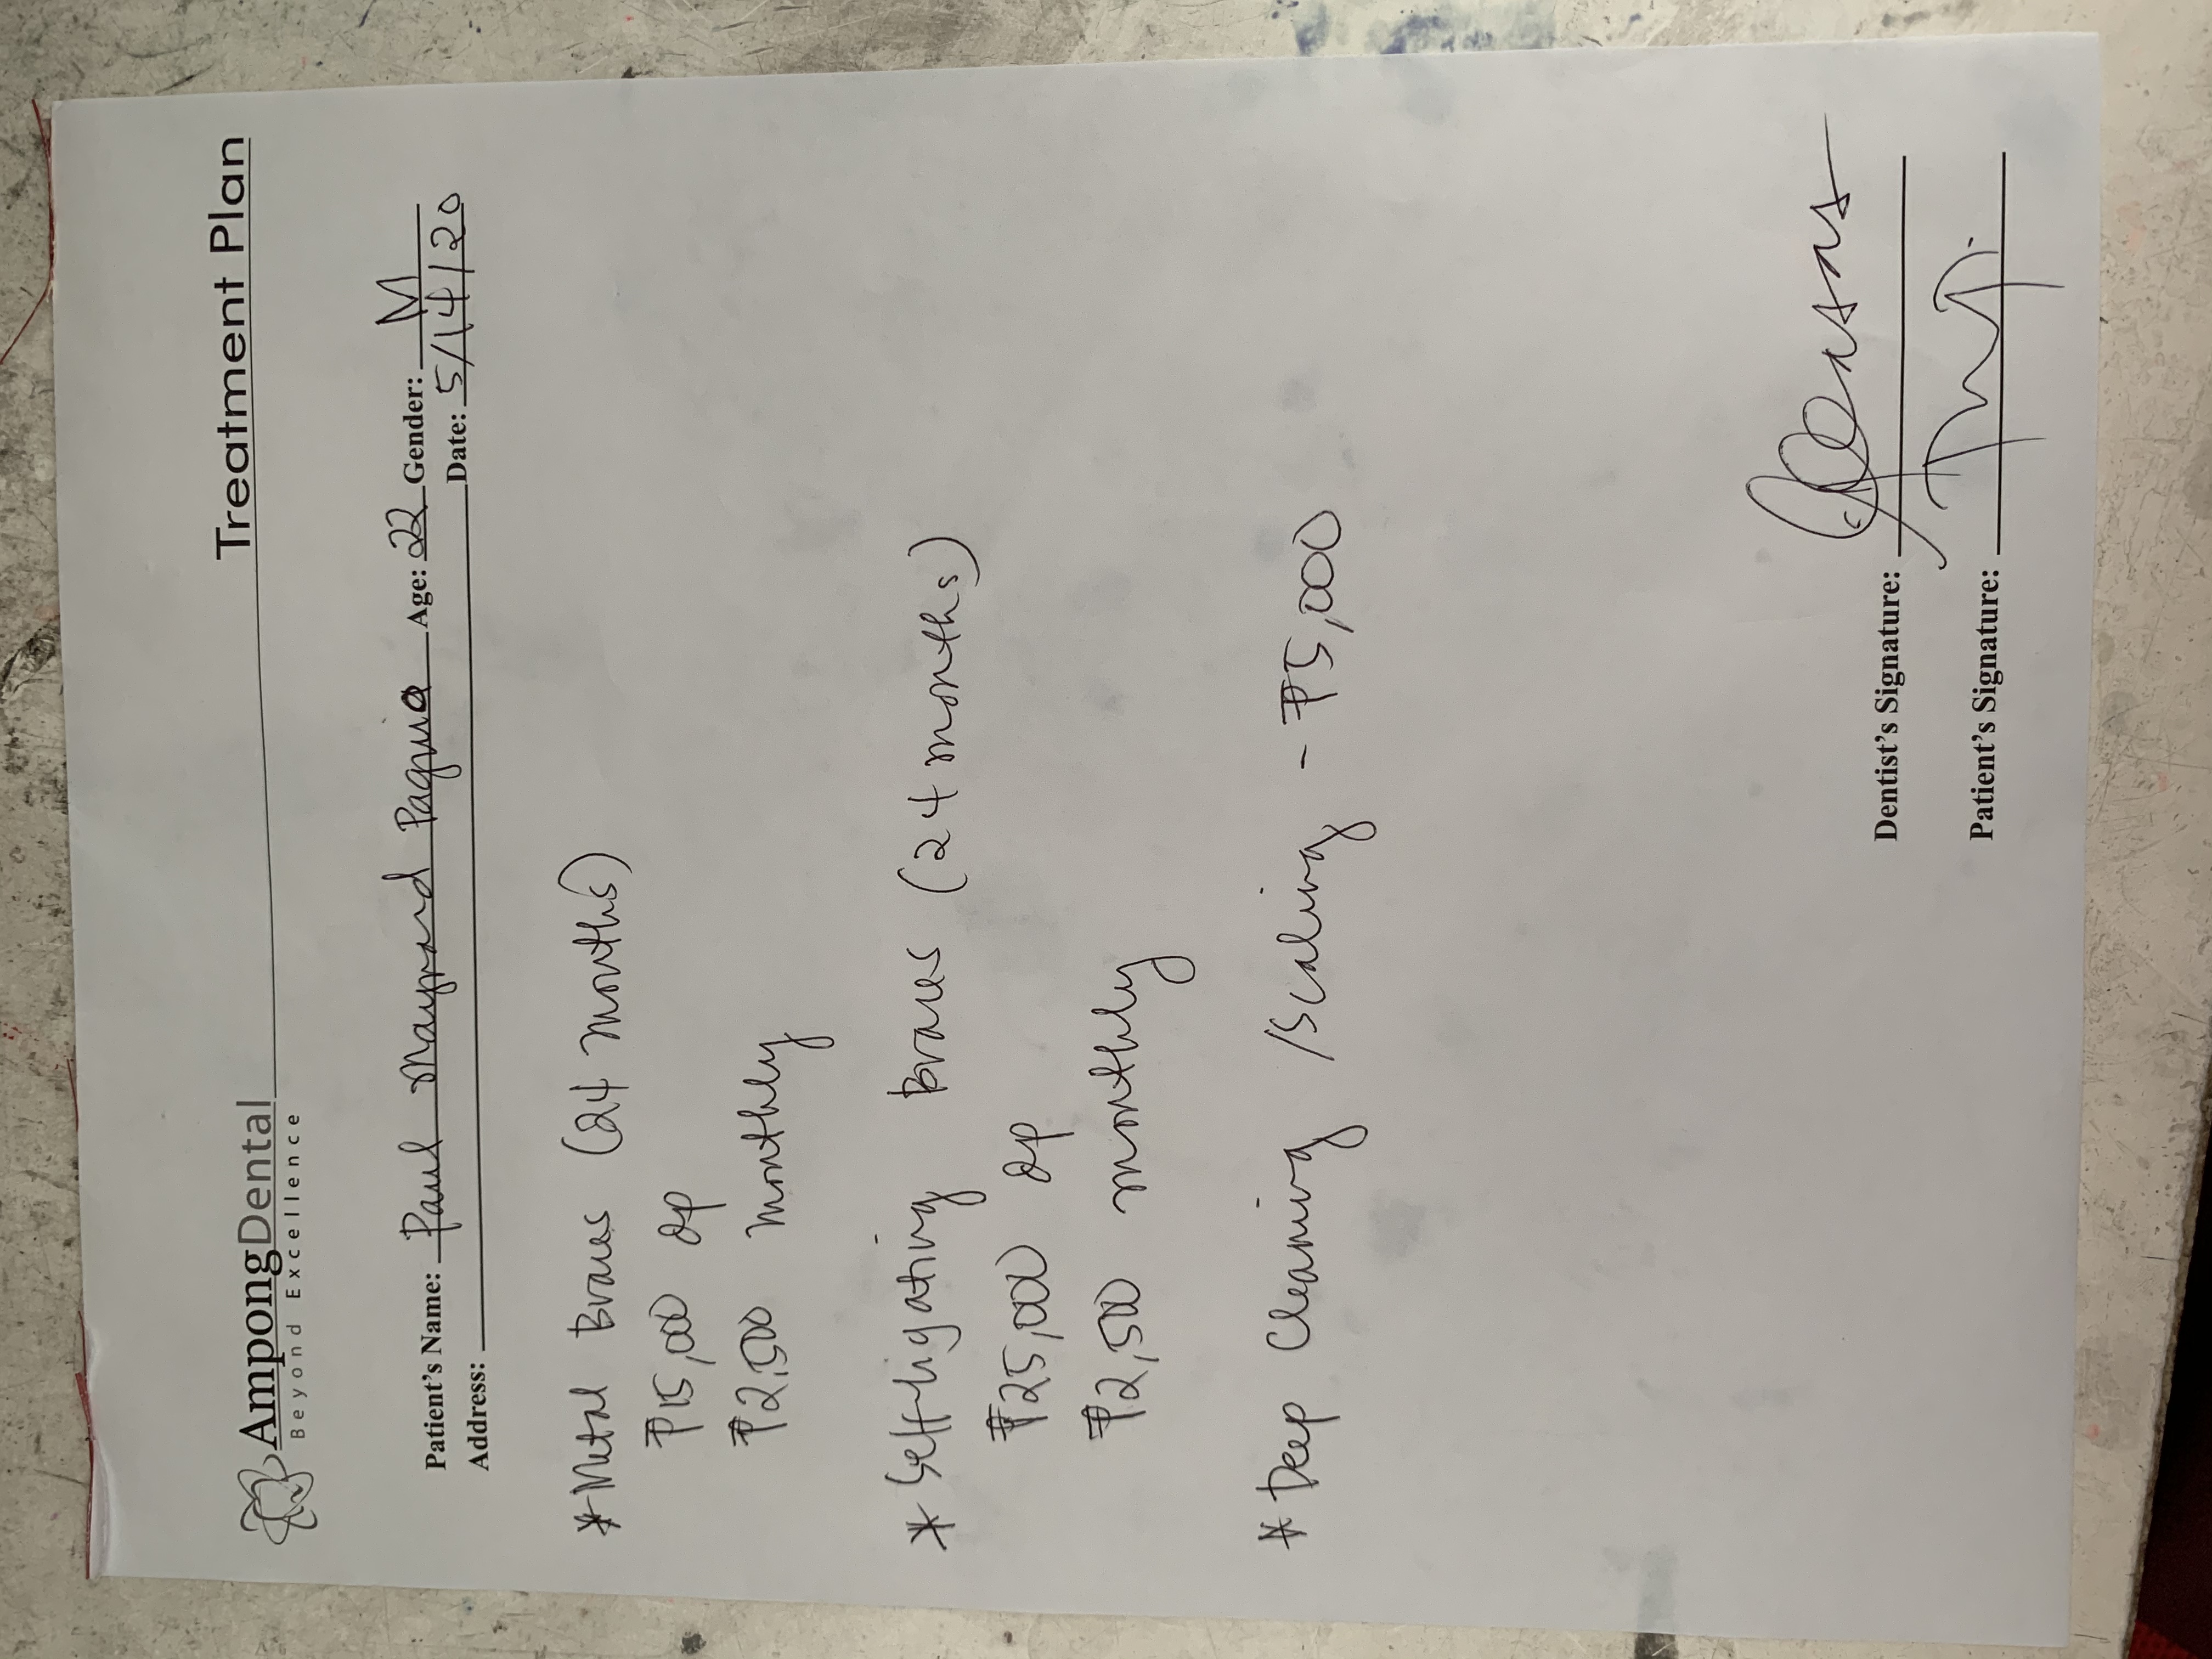 AmpongDental
Beyond Excellence
Treatment Plan
Patient's Name: Paul Maynard Paguia Age: 22 Gender: M
Address: Date: 5/14/20
* Metal Braces (24 months)
₱15,000 dp
₱2,500 monthly
* Self-ligating Braces (24 months)
₱25,000 dp
₱2,500 monthly
* Deep Cleaning /Scaling - ₱5,000
Dentist's Signature:
Patient's Signature: